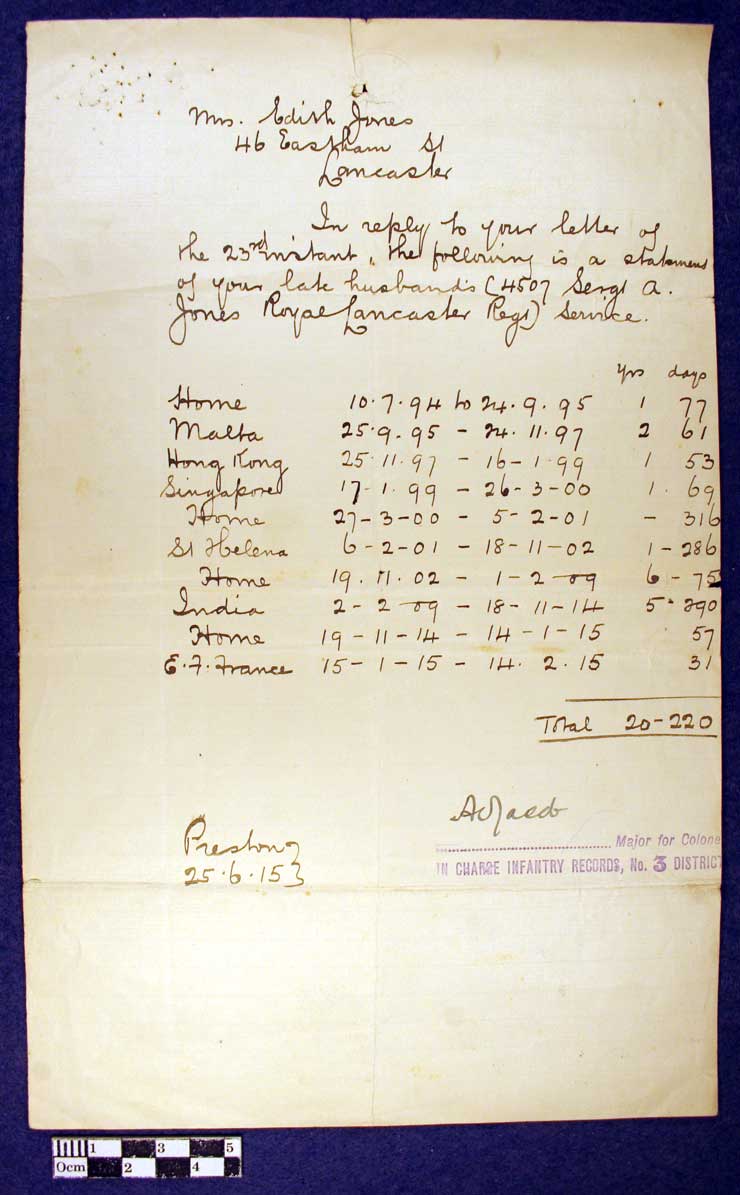 Mrs. Edith Jones
46 Eastham St
Lancaster
In reply to your letter of
the 23rd instant, the following is a statement
of your late husband's (4507 Sergt A.
Jones Royal Lancaster Regt) Service.
yrs days
Home 10.7.94 to 24.9.95 1 77
Malta 25.9.95 - 24.11.97 2 61
Hong Kong 25.11.97 - 16-1-99 1 53
Singapore 17-1.99 - 26-3-00 1. 69
Home 27-3-00 - 5-2-01 - 316
St Helena 6-2-01 - 18-11-02 1-286
Home 19.11.02 - 1-2-09 6-75
India 2-2-09 - 18-11-14 5-290
Home 19-11-14 - 14-1-15 57
E.F. France 15-1-15 - 14.2.15 31
Total 20-220
Preston
25.6.15
Major for Colone
IN CHARGE INFANTRY RECORDS, No. 3 DISTRICT
1 3 5
0cm 2 4